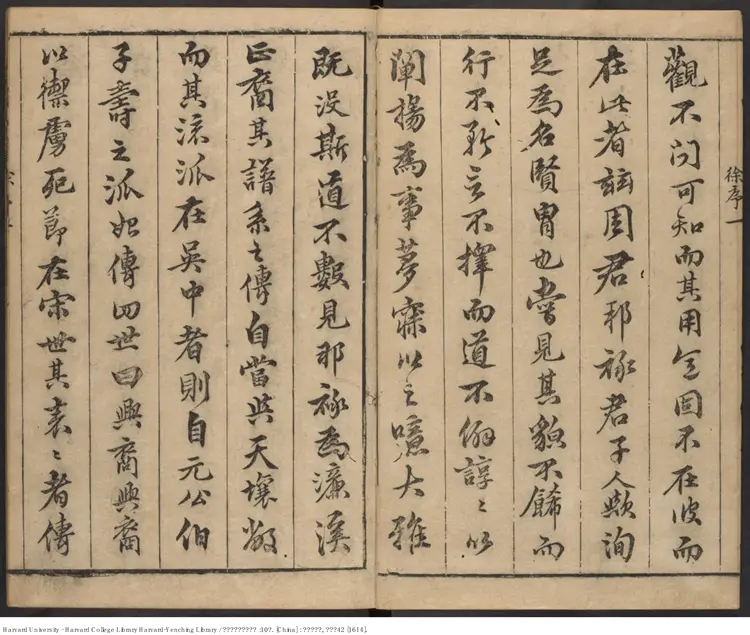 徐序 一
觀不問可知而其用意固不在彼而
在此者玆周君邦祿君子人歟洵
足為名賢冑也嘗見其貌不餙而
行不矜言不擇而道不倍諄〻以
闡揚為事夢寐以之噫大雅
既没斯道不數見邦祿為濂溪
正裔其譜系之傳自當與天壤敝
而其流派在吳中者則自元公伯
子壽之派始傳四世曰興裔興裔
以禦虜死節在宋世其表〻者傳
Harvard University - Harvard College Library Harvard-Yenching Library / ????????? :10?. [China] : ?????, ???42 [1614].